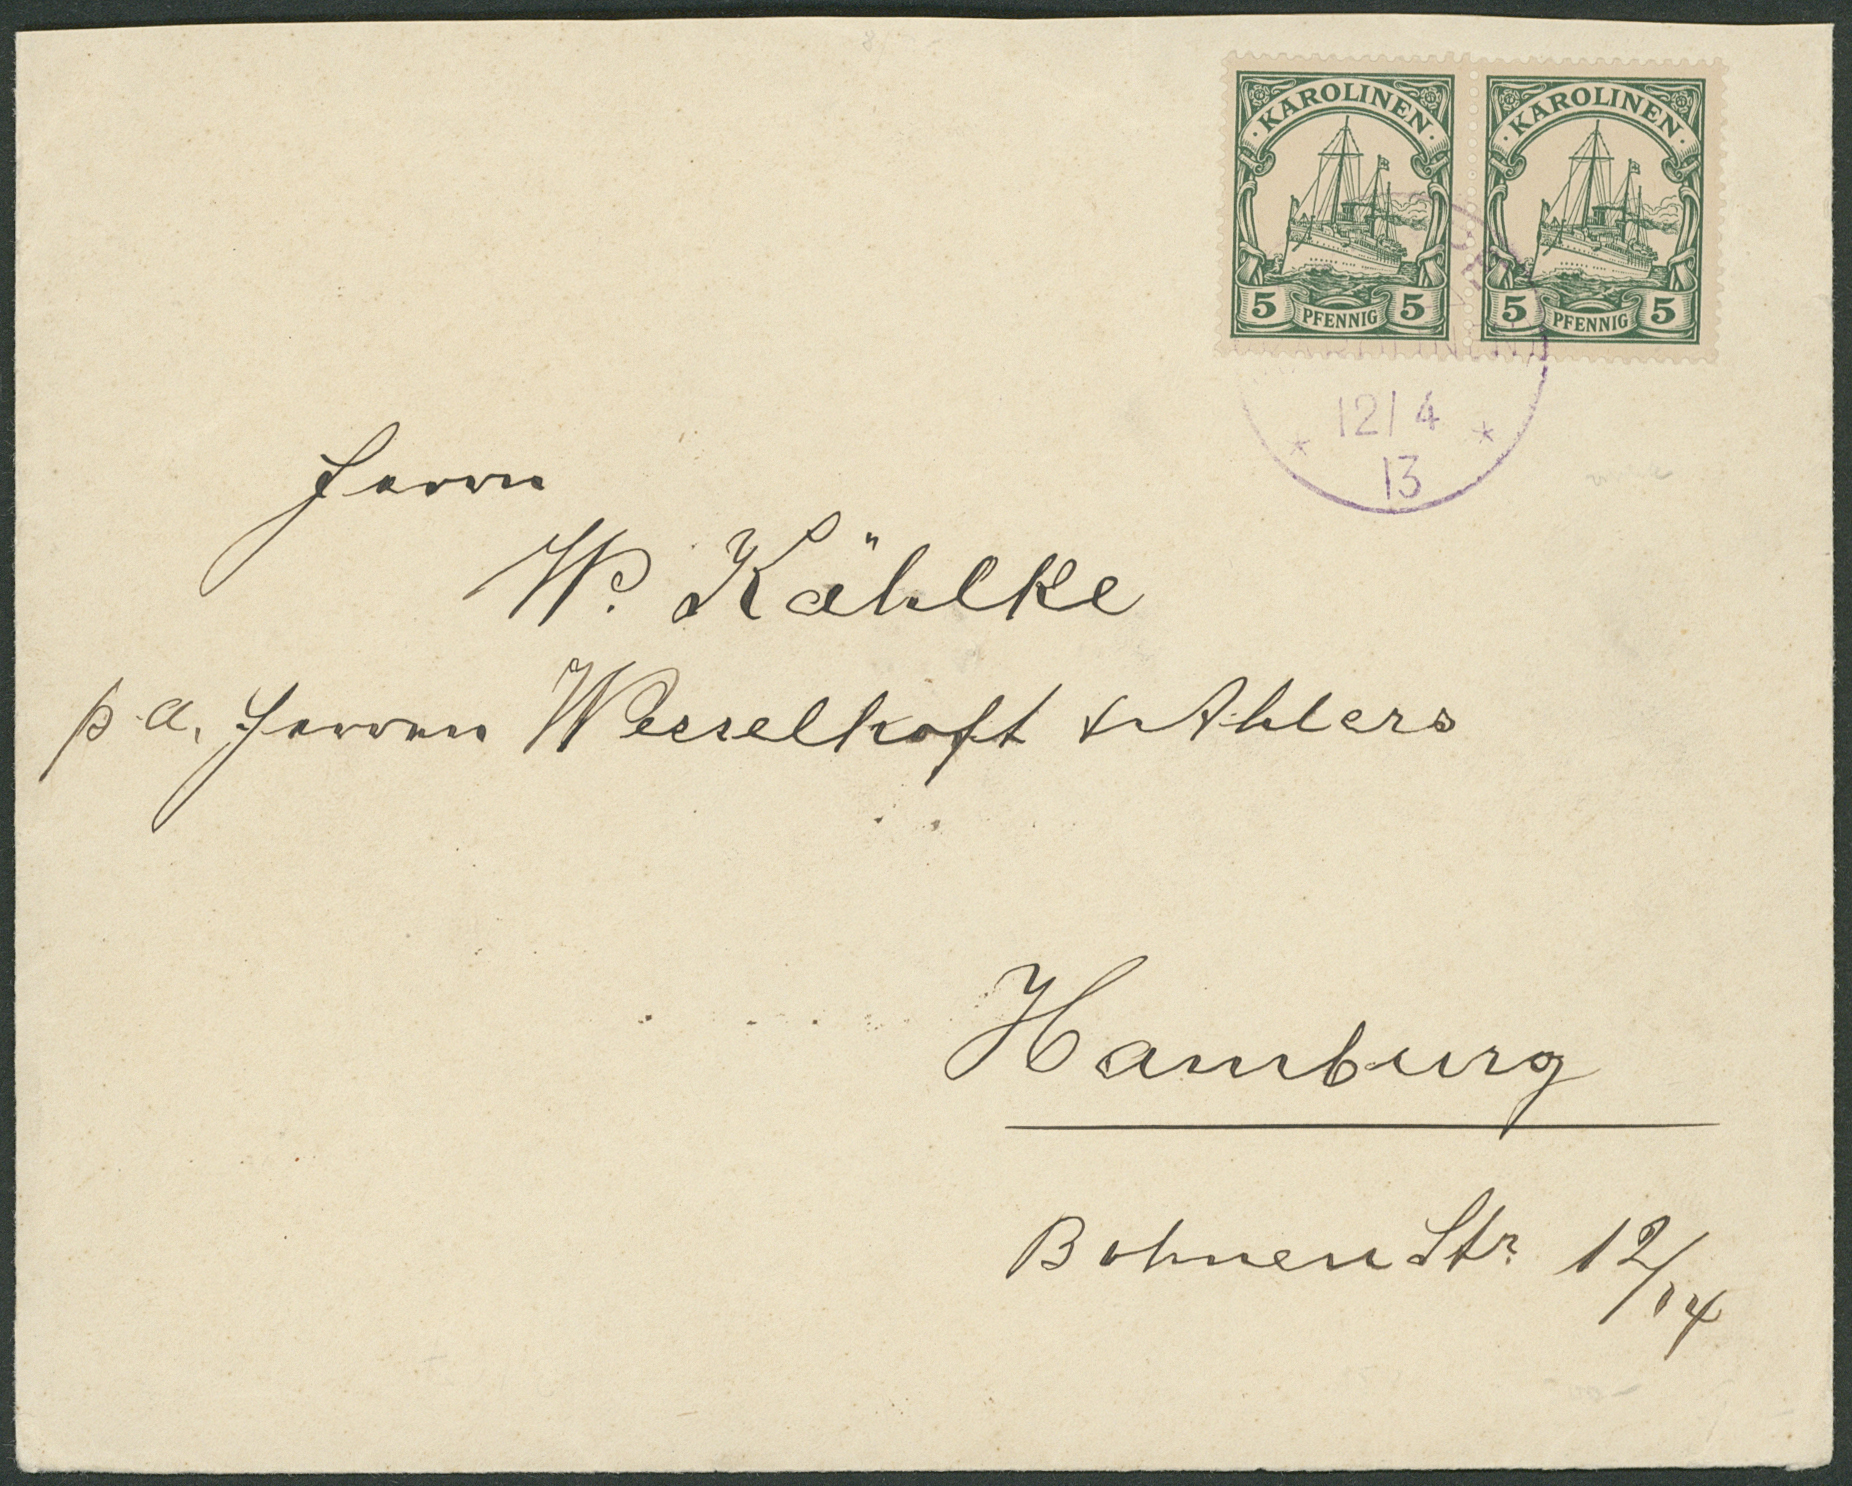 KAROLINEN KAROLINEN
5 PFENNIG 5 5 PFENNIG 5
* 12/4 *
13
Herrn
W. Kählke
p a. Herren Wesselhoft & Ahlers
Hamburg
Bohnen Str. 12/14